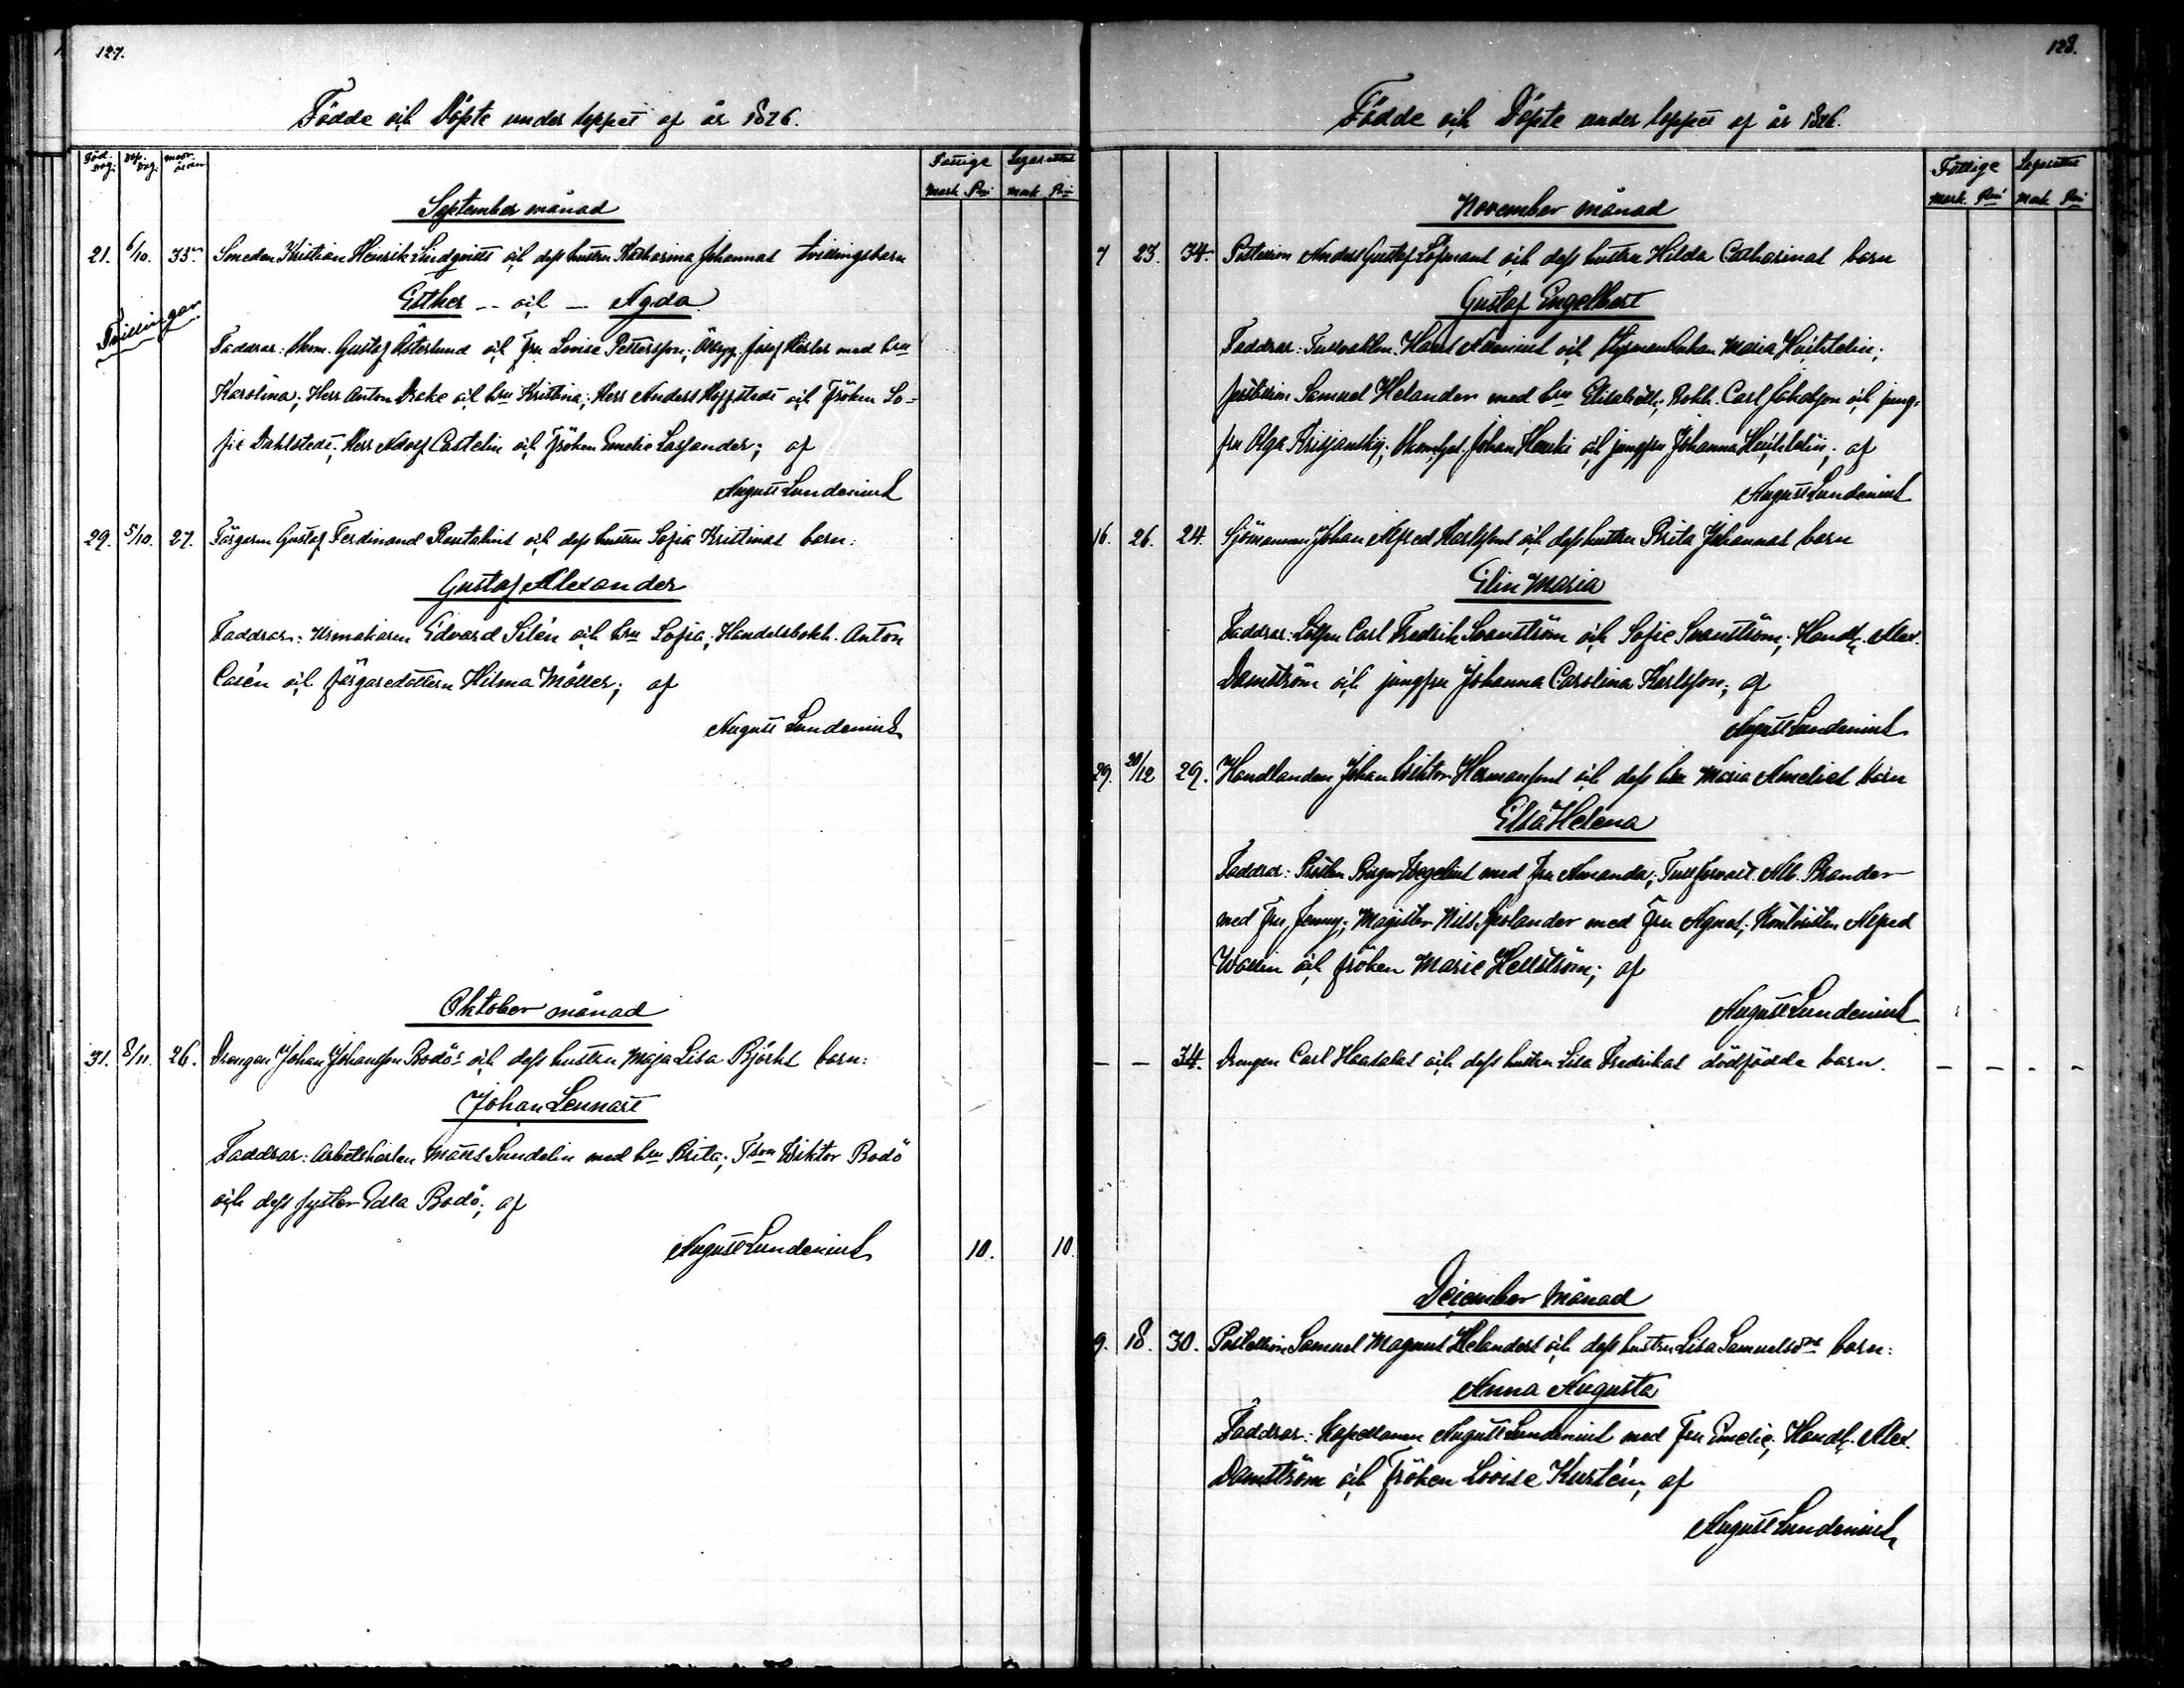 127.
Födde och Döpte under loppet af år 1876.
Föd. dag. Döp. dag. modr. ålder
Fattige Lazarettet
Mark Pni Mark Pni
September månad
21. 6/10. 33 Smeden Kristian Henrik Lindqvists och dess hustru Katharina Johannas tvillingsbarn
Esther -- och -- Agda
Tvillingar
Faddrar: Gustaf Österlund och Fru Lovise Pettersson, Josef med hru
Karolina; Herr Anton Drake och hru Kristina; Herr Anders Hoffstedt och Fröken So-
fie Dahlstedt; Herr Adolf Castelin och Fröken Emelie Laxander; af
August Lundenius
29. 5/10. 27. Färgaren Gustaf Ferdinand Rautalins och dess hustru Sofia Kristinas barn:
Gustaf Alexander
Faddrar: Urmakaren Edvard Silén och hru Sofia; Handelsbokh. Anton
Casén och färgaredottern Hilma Möller; af
August Lundenius
Oktober månad
31. 8/11. 26. Drengen Johan Johansson Bodös och dess hustru Maja Lisa Björks barn:
Johan Lennart
Faddrar: Arbetskarlen Matts Sundelin med hru Brita; Wiktor Bodö
och dess syster Edla Bodö; af
August Lundenius 10. 10.
128.
Födde och Döpte under loppet af år 1876.
Fattige Lazarettet
Mark Pni Mark Pni
November månad
7 23. 34. Postiljon Anders Gustaf Löfmans och dess hustru Hilda Catharinas barn
Gustaf Engelbert
Faddrar: Tullvaktm. Hans och Styrmansenkan Maria
Postiljon Samuel Helander med hru Elisabeth; Bokh. Carl och jung-
fru Olga Johan Henrik och jungfru Johanna af
August Lundenius
16. 26. 24. Sjömannen Johan Alfred Karlssons och dess hustru Brita Johannas barn
Elin Maria
Faddrar: Lotsen Carl Fredrik Svanström och Sofie Svanström; Handl. Alex.
Damström och jungfru Johanna Carolina Karlsson; af
August Lundenius
29. 20/12 29. Handlanden Johan Wiktor Hermansons och dess hru Maria Amelies barn
Elsa Helena
Faddrar: Birger Wegelius med Fru Amanda; Tullförvalt. Alb. Brander
med Fru Jenny; Magister Nils Spolander med Fru Agnes; Kontoristen Alfred
Wallin och fröken Marie Hellström; af
August Lundenius
- - 34. Drengen Carl Haasalas och dess hustru Lisa Fredrikas dödfödde barn. - - - -
December månad
9. 18. 30. Postiljon Samuel Magnus Helanders och dess hustru Lisa Samuelsdrs barn:
Anna Augusta
Faddrar: Kapellanen August Lundenius med Fru Emelie; Handl. Alex.
Damström och Fröken Lovise Kerstén; af
August Lundenius